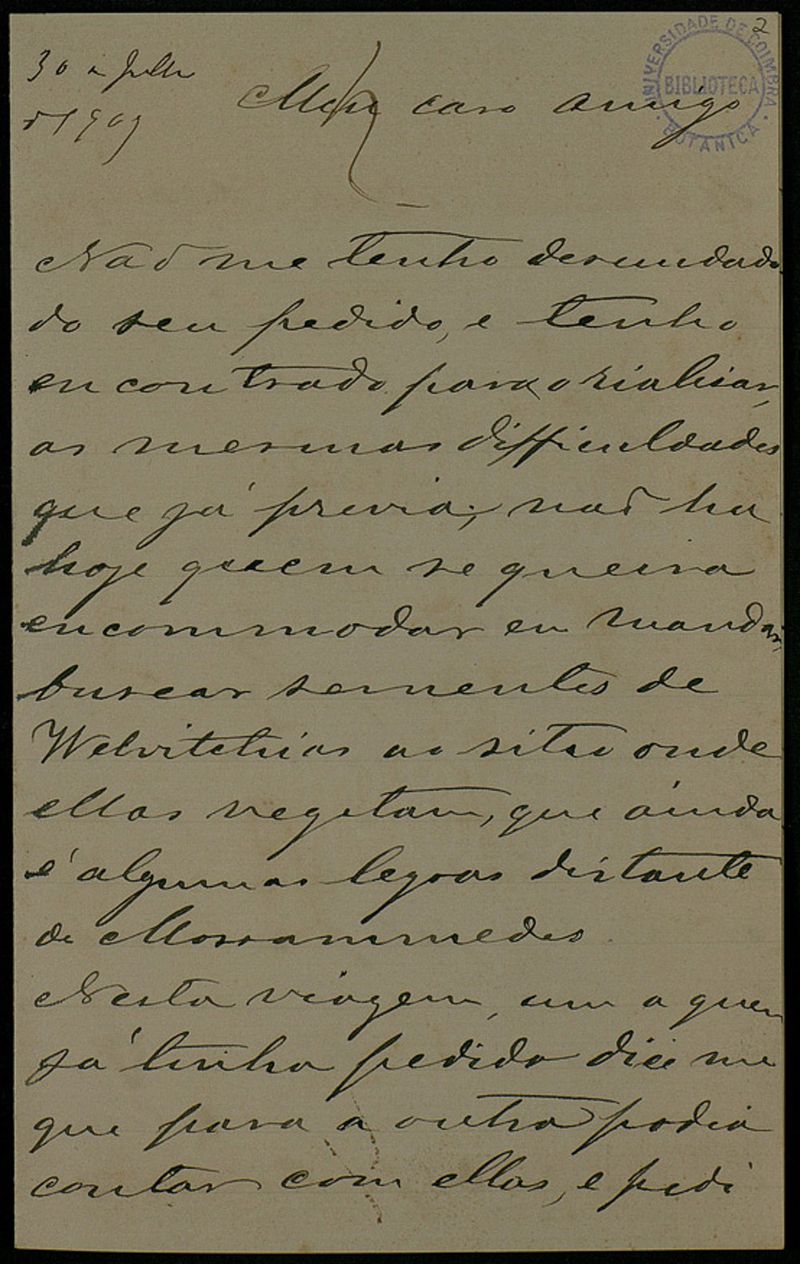 2
UNIVERSIDADE DE COIMBRA
BIBLIOTECA
BOTANICA
30 de Julho
de 1909
Meu caro amigo
Não me tenho descuidado
do seu pedido, e tenho
encontrado para o rialisar,
as mesmas difficuldades
que já previa; não ha
hoje quem se queira
encommodar em mandar
buscar sementes de
Welvitchias ao sitio onde
ellas vegetam, que áinda
é algumas legoas distante
de Mossammedes
Nesta viagem, um a quem
já tinha pedido dice me
que para a outra podia
contar com ellas, e pedi